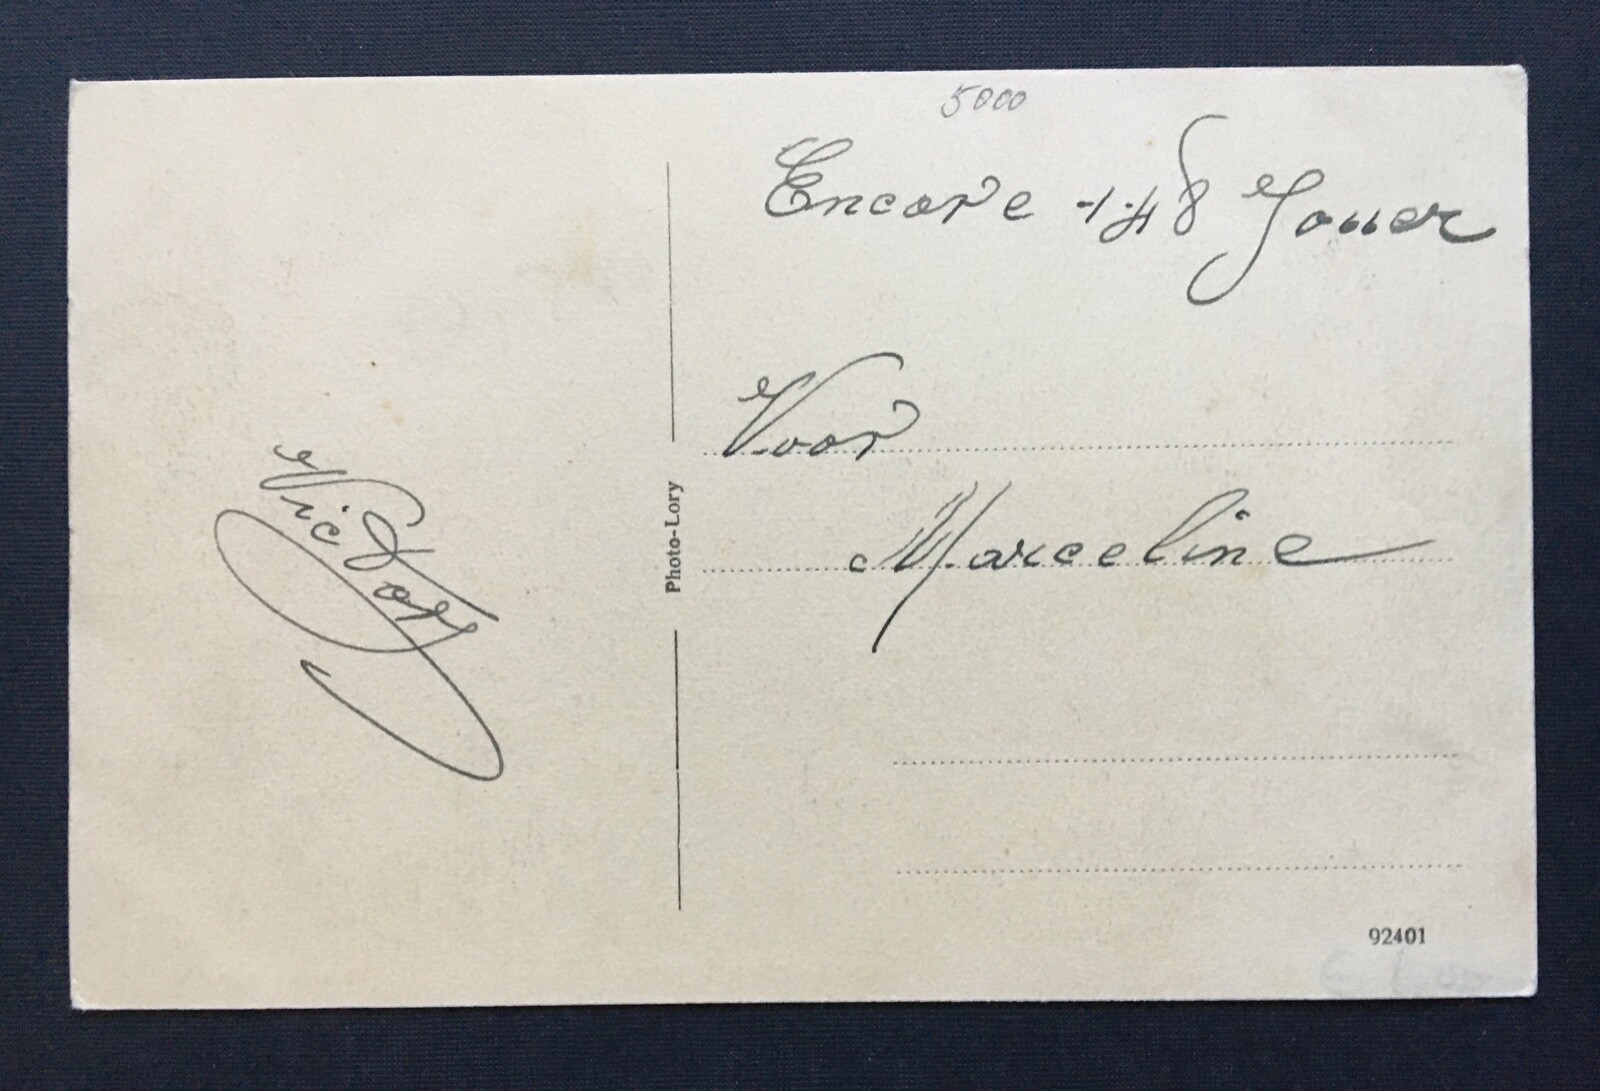 5000
Encore 148 Jouer
Voor
Marceline
Victor
Photo-Lory
92401